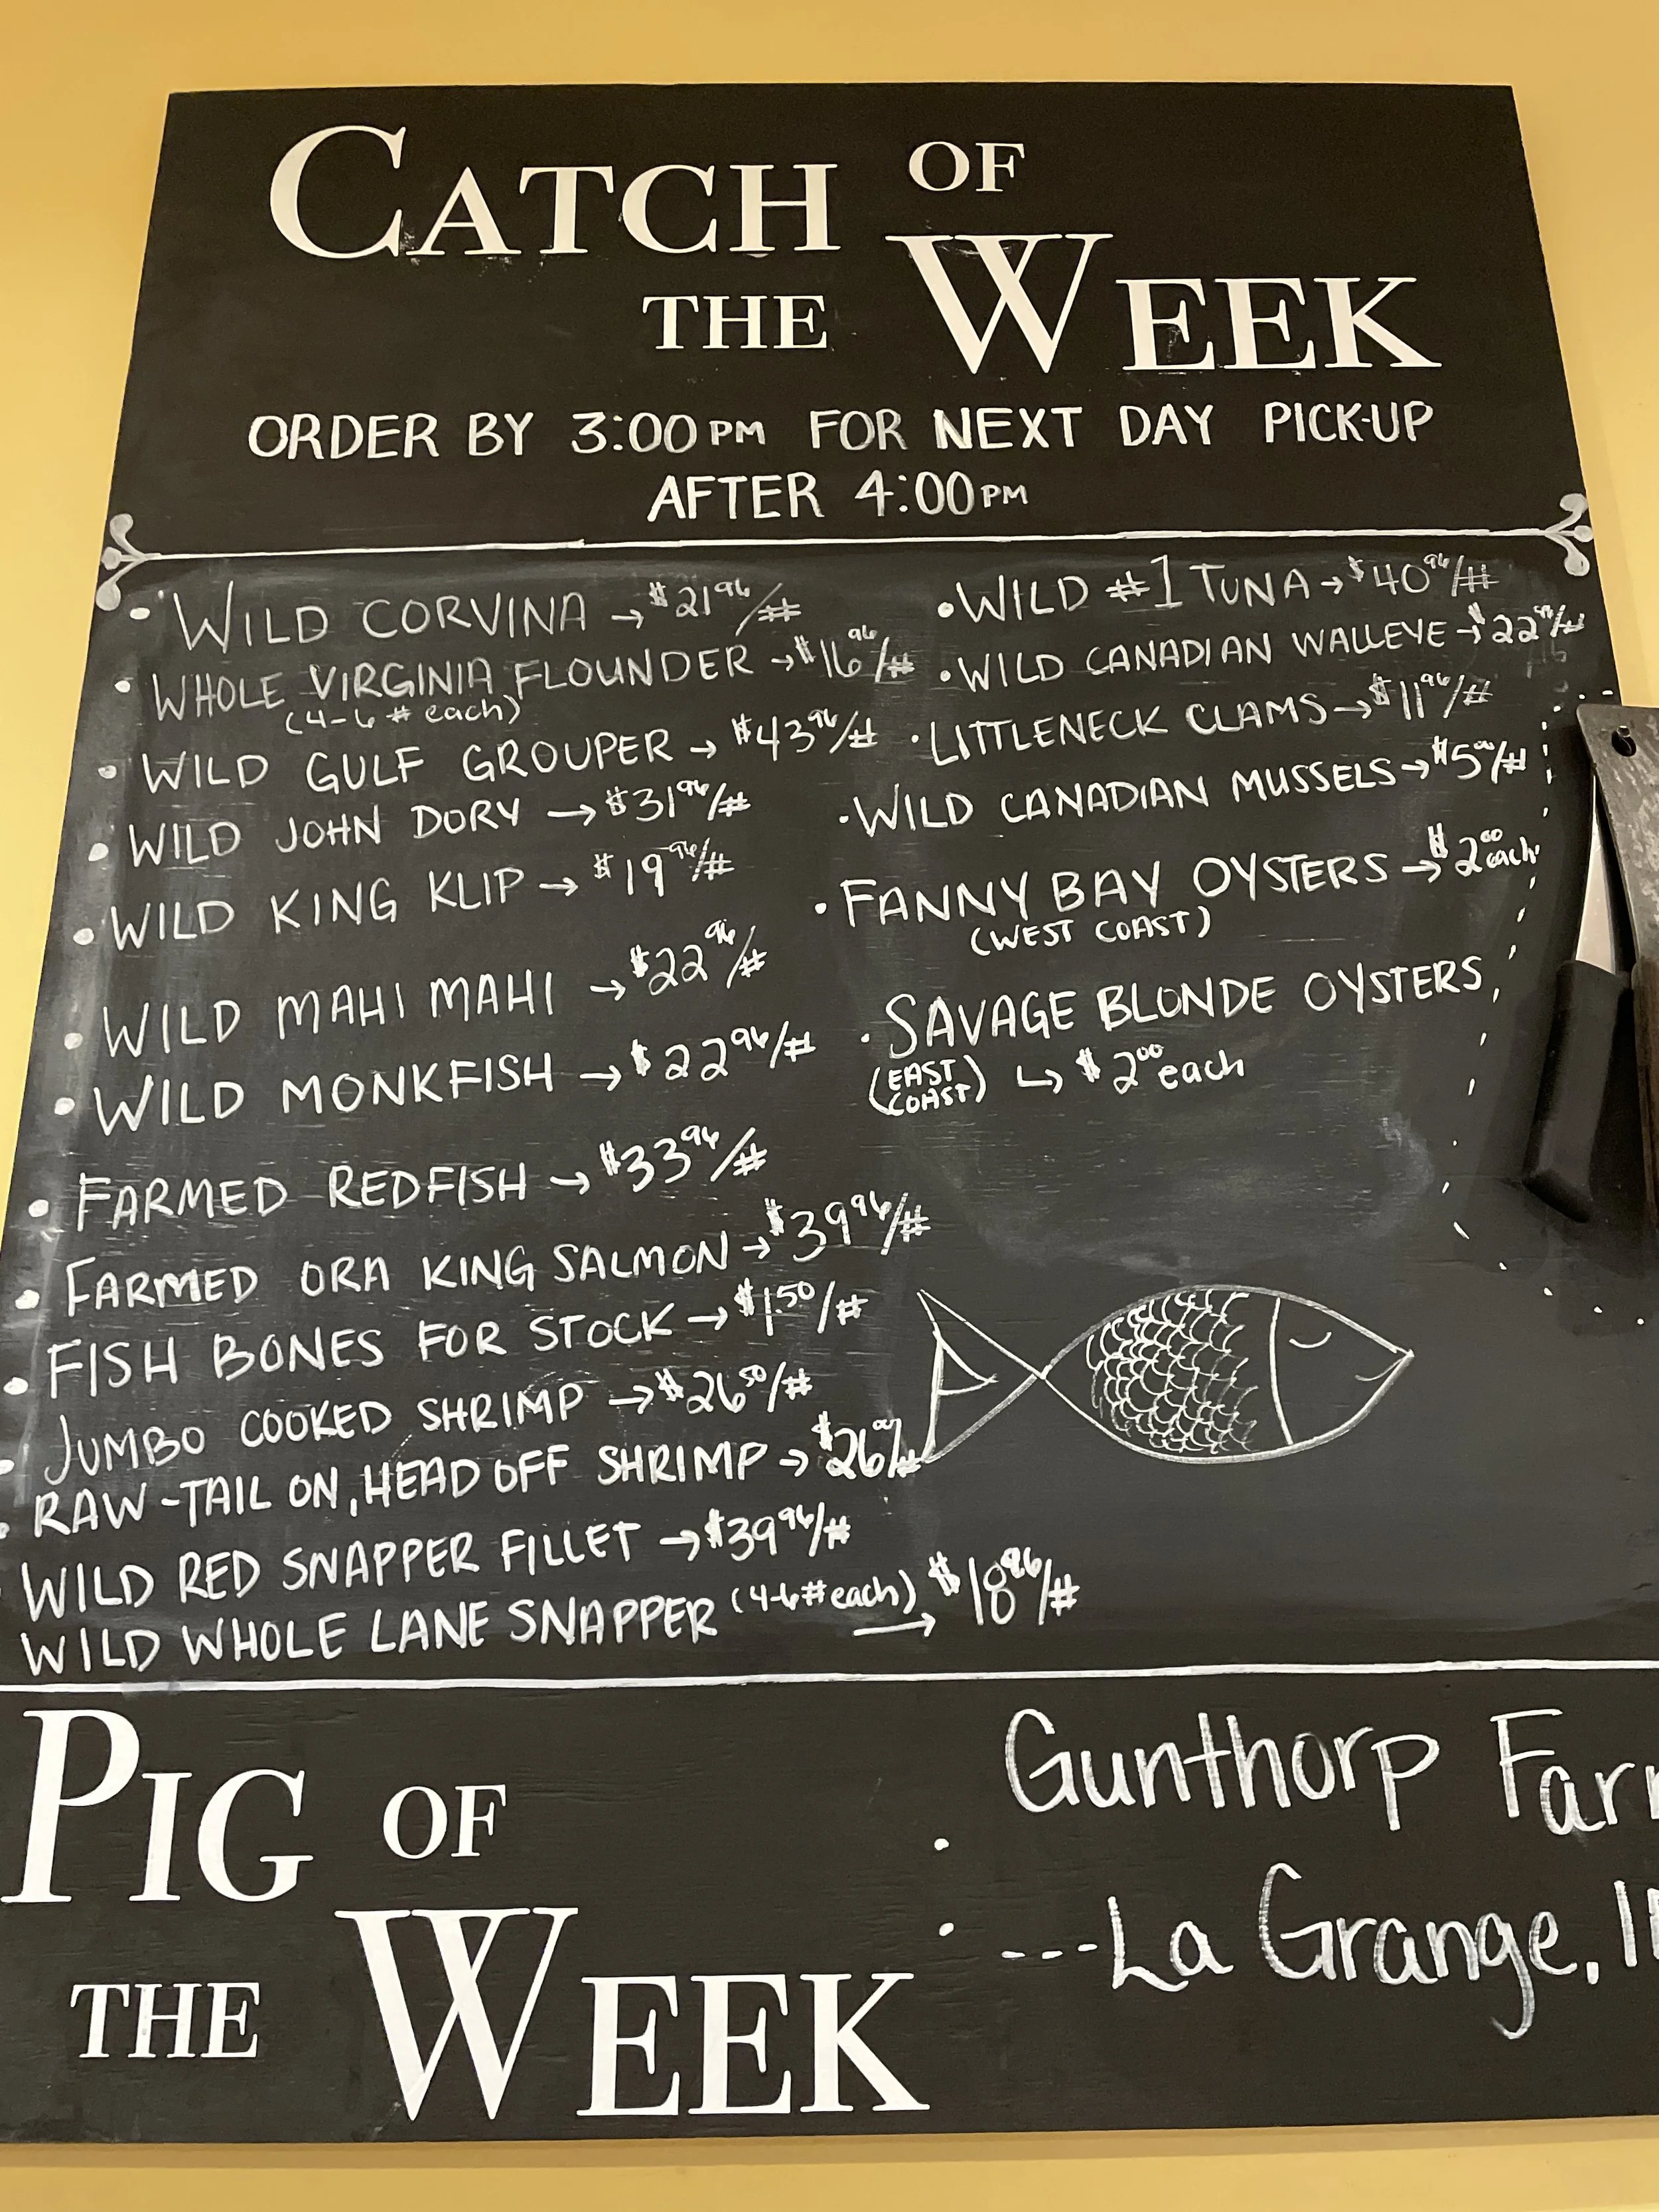 CATCH OF
THE WEEK
ORDER BY 3:00PM FOR NEXT DAY PICK-UP
AFTER 4:00PM
• WILD CORVINA → $21⁹⁶/#
• WHOLE VIRGINIA FLOUNDER → $16⁹⁶/#
(4-6# each)
• WILD GULF GROUPER → $43⁹⁶/#
• WILD JOHN DORY → $31⁹⁶/#
• WILD KING KLIP → $19⁹⁶/#
• WILD MAHI MAHI → $22⁹⁶/#
• WILD MONKFISH → $22⁹⁶/#
• FARMED REDFISH → $33⁹⁶/#
• FARMED ORA KING SALMON → $39⁹⁶/#
• FISH BONES FOR STOCK → $1.⁵⁰/#
• JUMBO COOKED SHRIMP → $26⁵⁰/#
• RAW-TAIL ON, HEAD OFF SHRIMP → $26⁰⁰/#
WILD RED SNAPPER FILLET → $39⁹⁶/#
WILD WHOLE LANE SNAPPER (4-6# each) → $18⁹⁶/#
• WILD #1 TUNA → $40⁹⁶/#
• WILD CANADIAN WALLEYE → $22/#
• LITTLENECK CLAMS → $11⁹⁶/#
• WILD CANADIAN MUSSELS → $5⁰⁰/#
• FANNY BAY OYSTERS → $2⁰⁰ each
(WEST COAST)
• SAVAGE BLONDE OYSTERS
(EAST COAST) ↳ $2⁰⁰ each
PIG OF
THE WEEK
Gunthorp Far
---La Grange, I